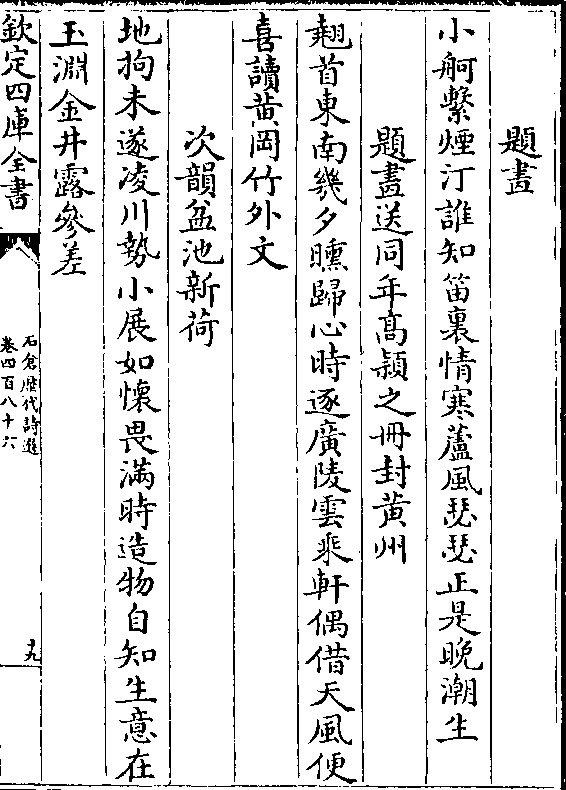 題畫
小舸繫煙汀誰知笛裏情寒蘆風瑟瑟正是晩潮生
題畫送同年髙潁之冊封黄州
翹首東南幾夕曛歸心時逐廣陵雲乘軒偶借天風便
喜讀黄岡竹外文
次韻盆池新荷
地拘未遂凌川勢小展如懷畏滿時造物自知生意在
玉淵金井露參差
欽定四庫全書
石倉歴代詩選
卷四百八十六
十九